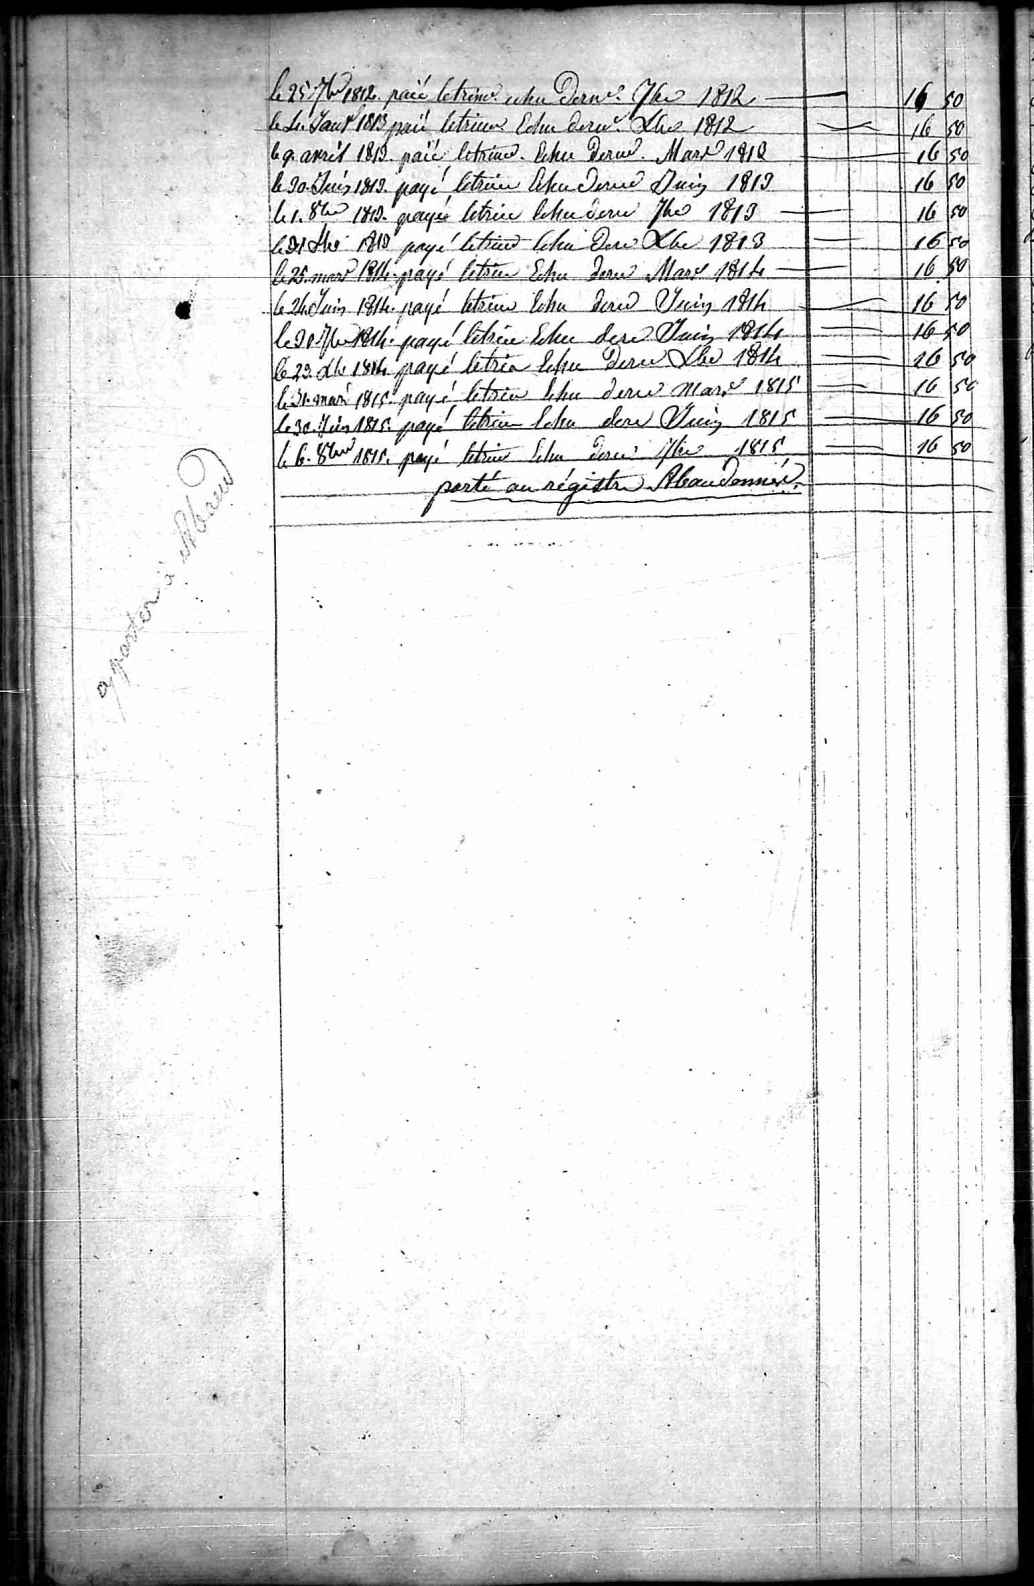 le 25 7bre 1812. paié letrime. echu dern.e 7bre 1812 16 50
le 4. Janv 1813 paié letrime Echu dern.e Xbre 1812 16 50
le 9 avril 1813. paié letrime. Echu derne. Mars 1813 16 50
le 30. Juin 1813. payé letrim Echu derne Juin 1813 16 50
le 1. 8bre 1813. payé letrim Echu derne 7bre 1813 16 50
le 31 Xbre 1813 payé letrim Echu derne Xbre 1813 16 50
le 25. mars 1814. payé letrim Echu derne Mars 1814 16 50
le 24 Juin 1814. payé letrim Echu derne Juin 1814 16 50
le 30. 7bre 1814. payé letrim Echu derne Juin 1814 16 50
le 23. Xb 1814 payé letrim Echu derne Xbre 1814 16 50
le 31. mars 1815. payé letrim Echu derne mars 1815 16 50
le 30. Juin 1815. payé letrim Echu derne Juin 1815 16 50
le 6. 8bre 1815. payé letrim Echu derne 7bre 1815 16 50
porté au régistre Abandonnés.
aporter à